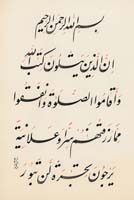 بسم الله الرحمن الرحيم
ان الذين يتلون كتب الله
واقاموا الصلوة وانفقوا
مما رزقنهم سرا وعلانية
يرجون تجرة لن تبور